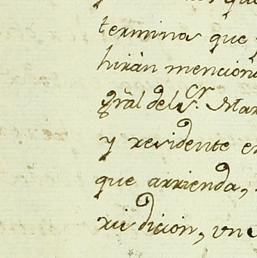 termina que
hirán mencion
grãl del Sr. Mar
y residente en
que arrienda,
risdicion, un